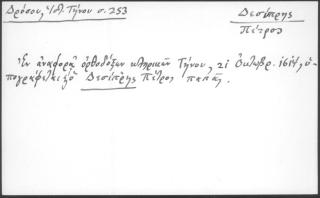 Δρόσου, Ἱστ. Τήνου σ. 253
Δεσίπρης
Πέτρος
Ἐν ἀναφορᾷ ὀρθοδόξων κληρικῶν Τήνου, 21 Ὀκτωβρ. 1614, ὑ-
πογράφεται ὁ Δεσίπρης Πέτρος παπᾶς.